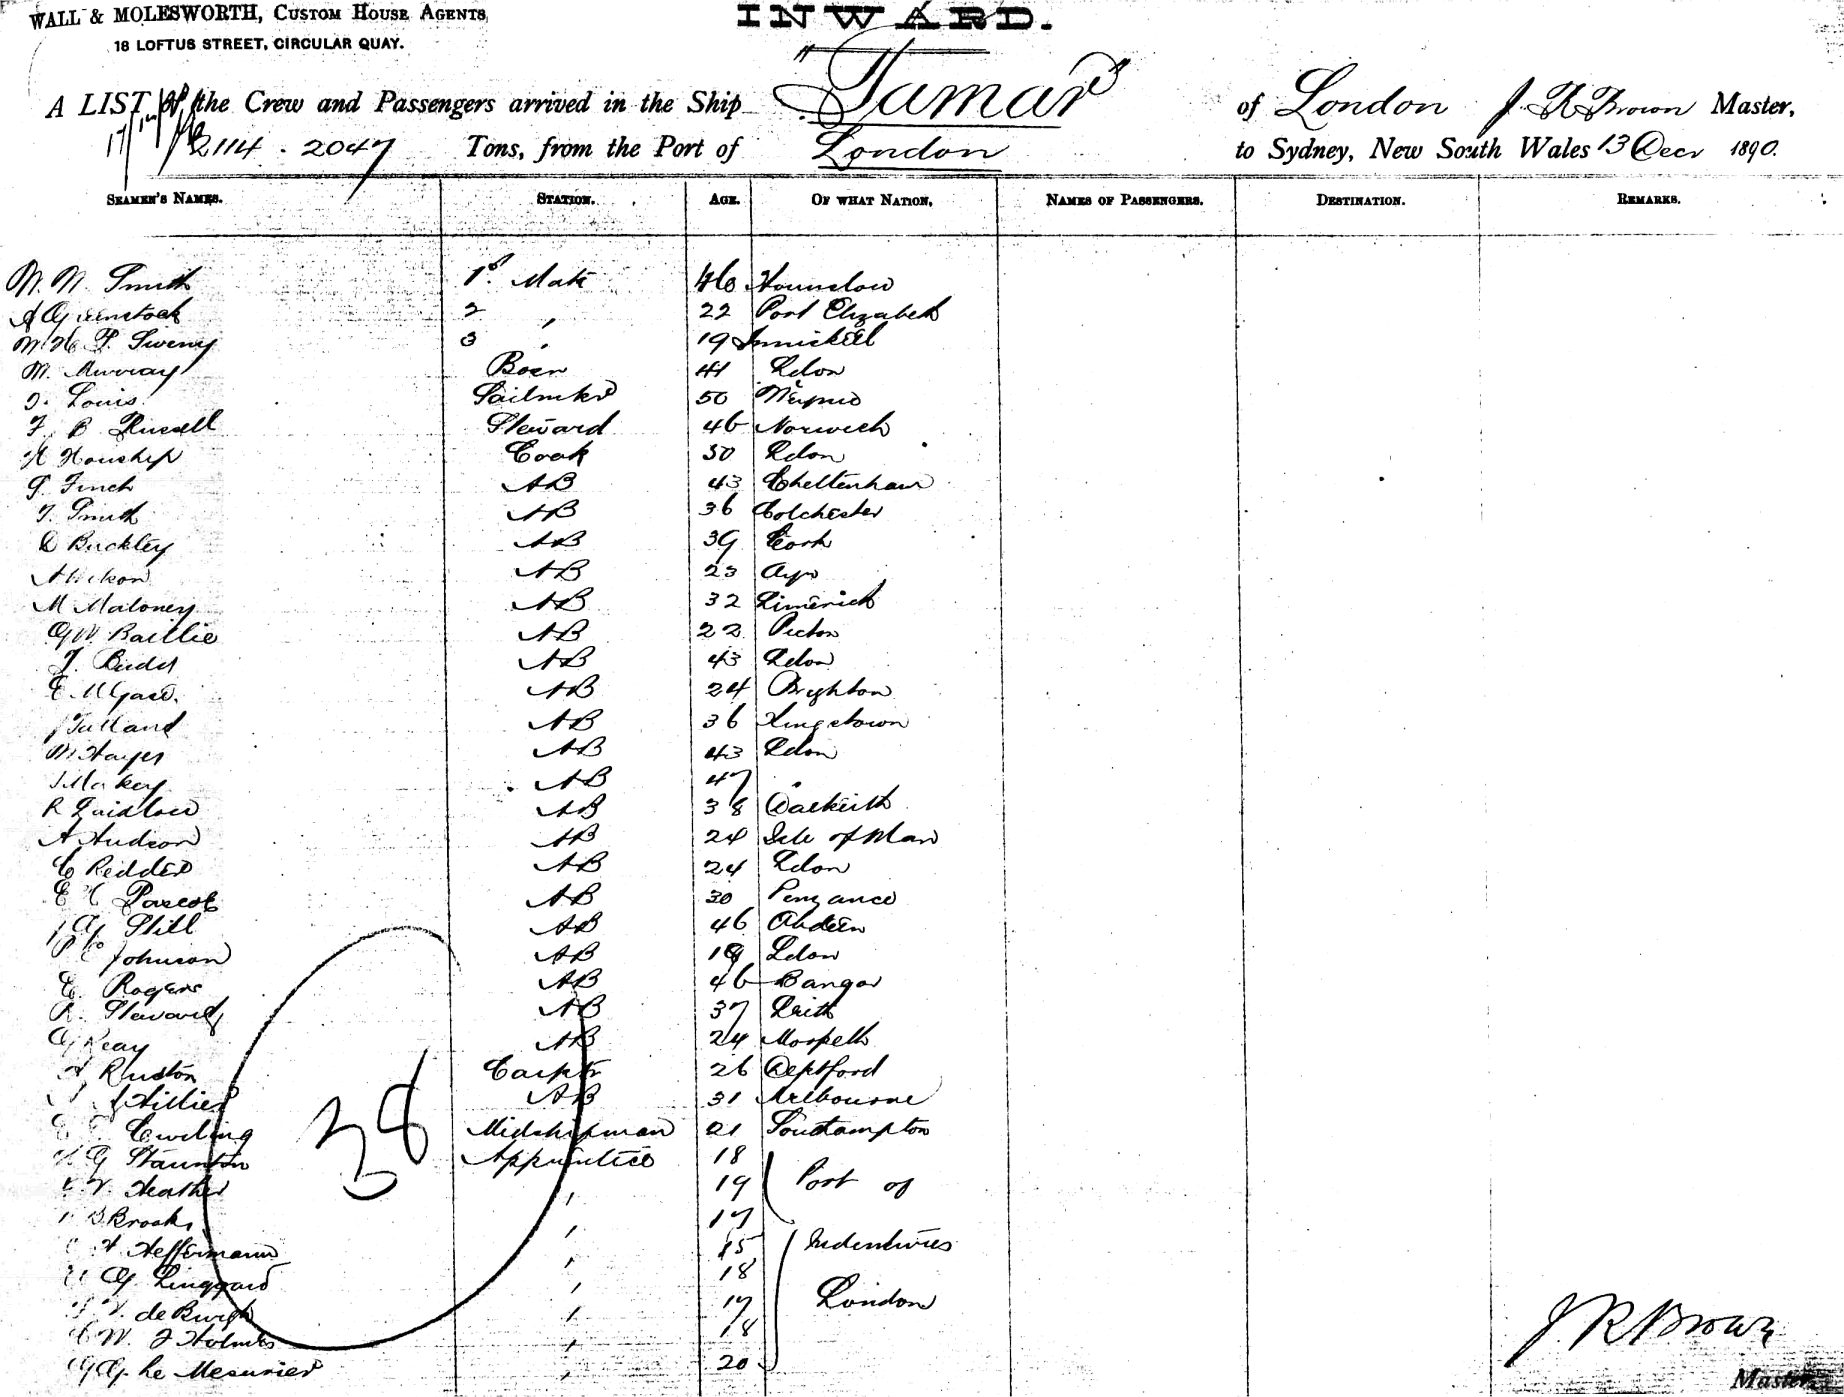 WALL & MOLESWORTH, CUSTOM HOUSE AGENTS,
18 LOFTUS STREET, CIRCULAR QUAY.
INWARD.
A LIST of the Crew and Passengers arrived in the Ship "Tamar" of London J. R Brown Master,
2114 . 2047 Tons, from the Port of London to Sydney, New South Wales 13 Decr 1890.
SEAMEN'S NAMES. STATION. AGE. OF WHAT NATION. NAMES OF PASSENGERS. DESTINATION. REMARKS.
W. M. Smith 1st Mate 46 Hounslow
A Greenstock 2 " 22 Port Elizabeth
W H P. Sweny 3 " 19
M. Murray Bosn 41 Ldon
J. Louis Sailmkr 50
F. B Russell Steward 46 Norwich
H Houship Cook 30 Ldon
G. Finch AB 43 Cheltenham
T. Smith AB 36 Colchester
D Buckley AB 39 Cork
AB 23 Ayr
M Maloney AB 32 Limerick
G W. Baillie AB 22 Picton
AB 43 Ldon
AB 24 Brighton
J Rutland AB 36 Kingstown
M Hayes AB 43 Ldon
AB 47 "
R Laidlaw AB 38 Dalkeith
A Hudson AB 24 Isle of Man
C Redder AB 24 Ldon
E Pascoe AB 30 Penzance
J G Still AB 46 Abdeen
Johnson AB 19 Ldon
E. Rogers AB 46 Bangor
R. Steward AB 37 Leith
G Reay AB 24 Morpeth
A Ruston Carptr 26 Deptford
J Hillier AB 31 Melbourne
Midshipman 21 Southampton
G Staunton Apprentice 18
V. Heather " 19 Port of
Brooks " 17
Heffermann " 15 Indentures
G. Linggard " 18
V. de Burgh " 17 London
W. J Holmes " 18
G G. Le Mesurier " 20
38
J R Brown
Master.